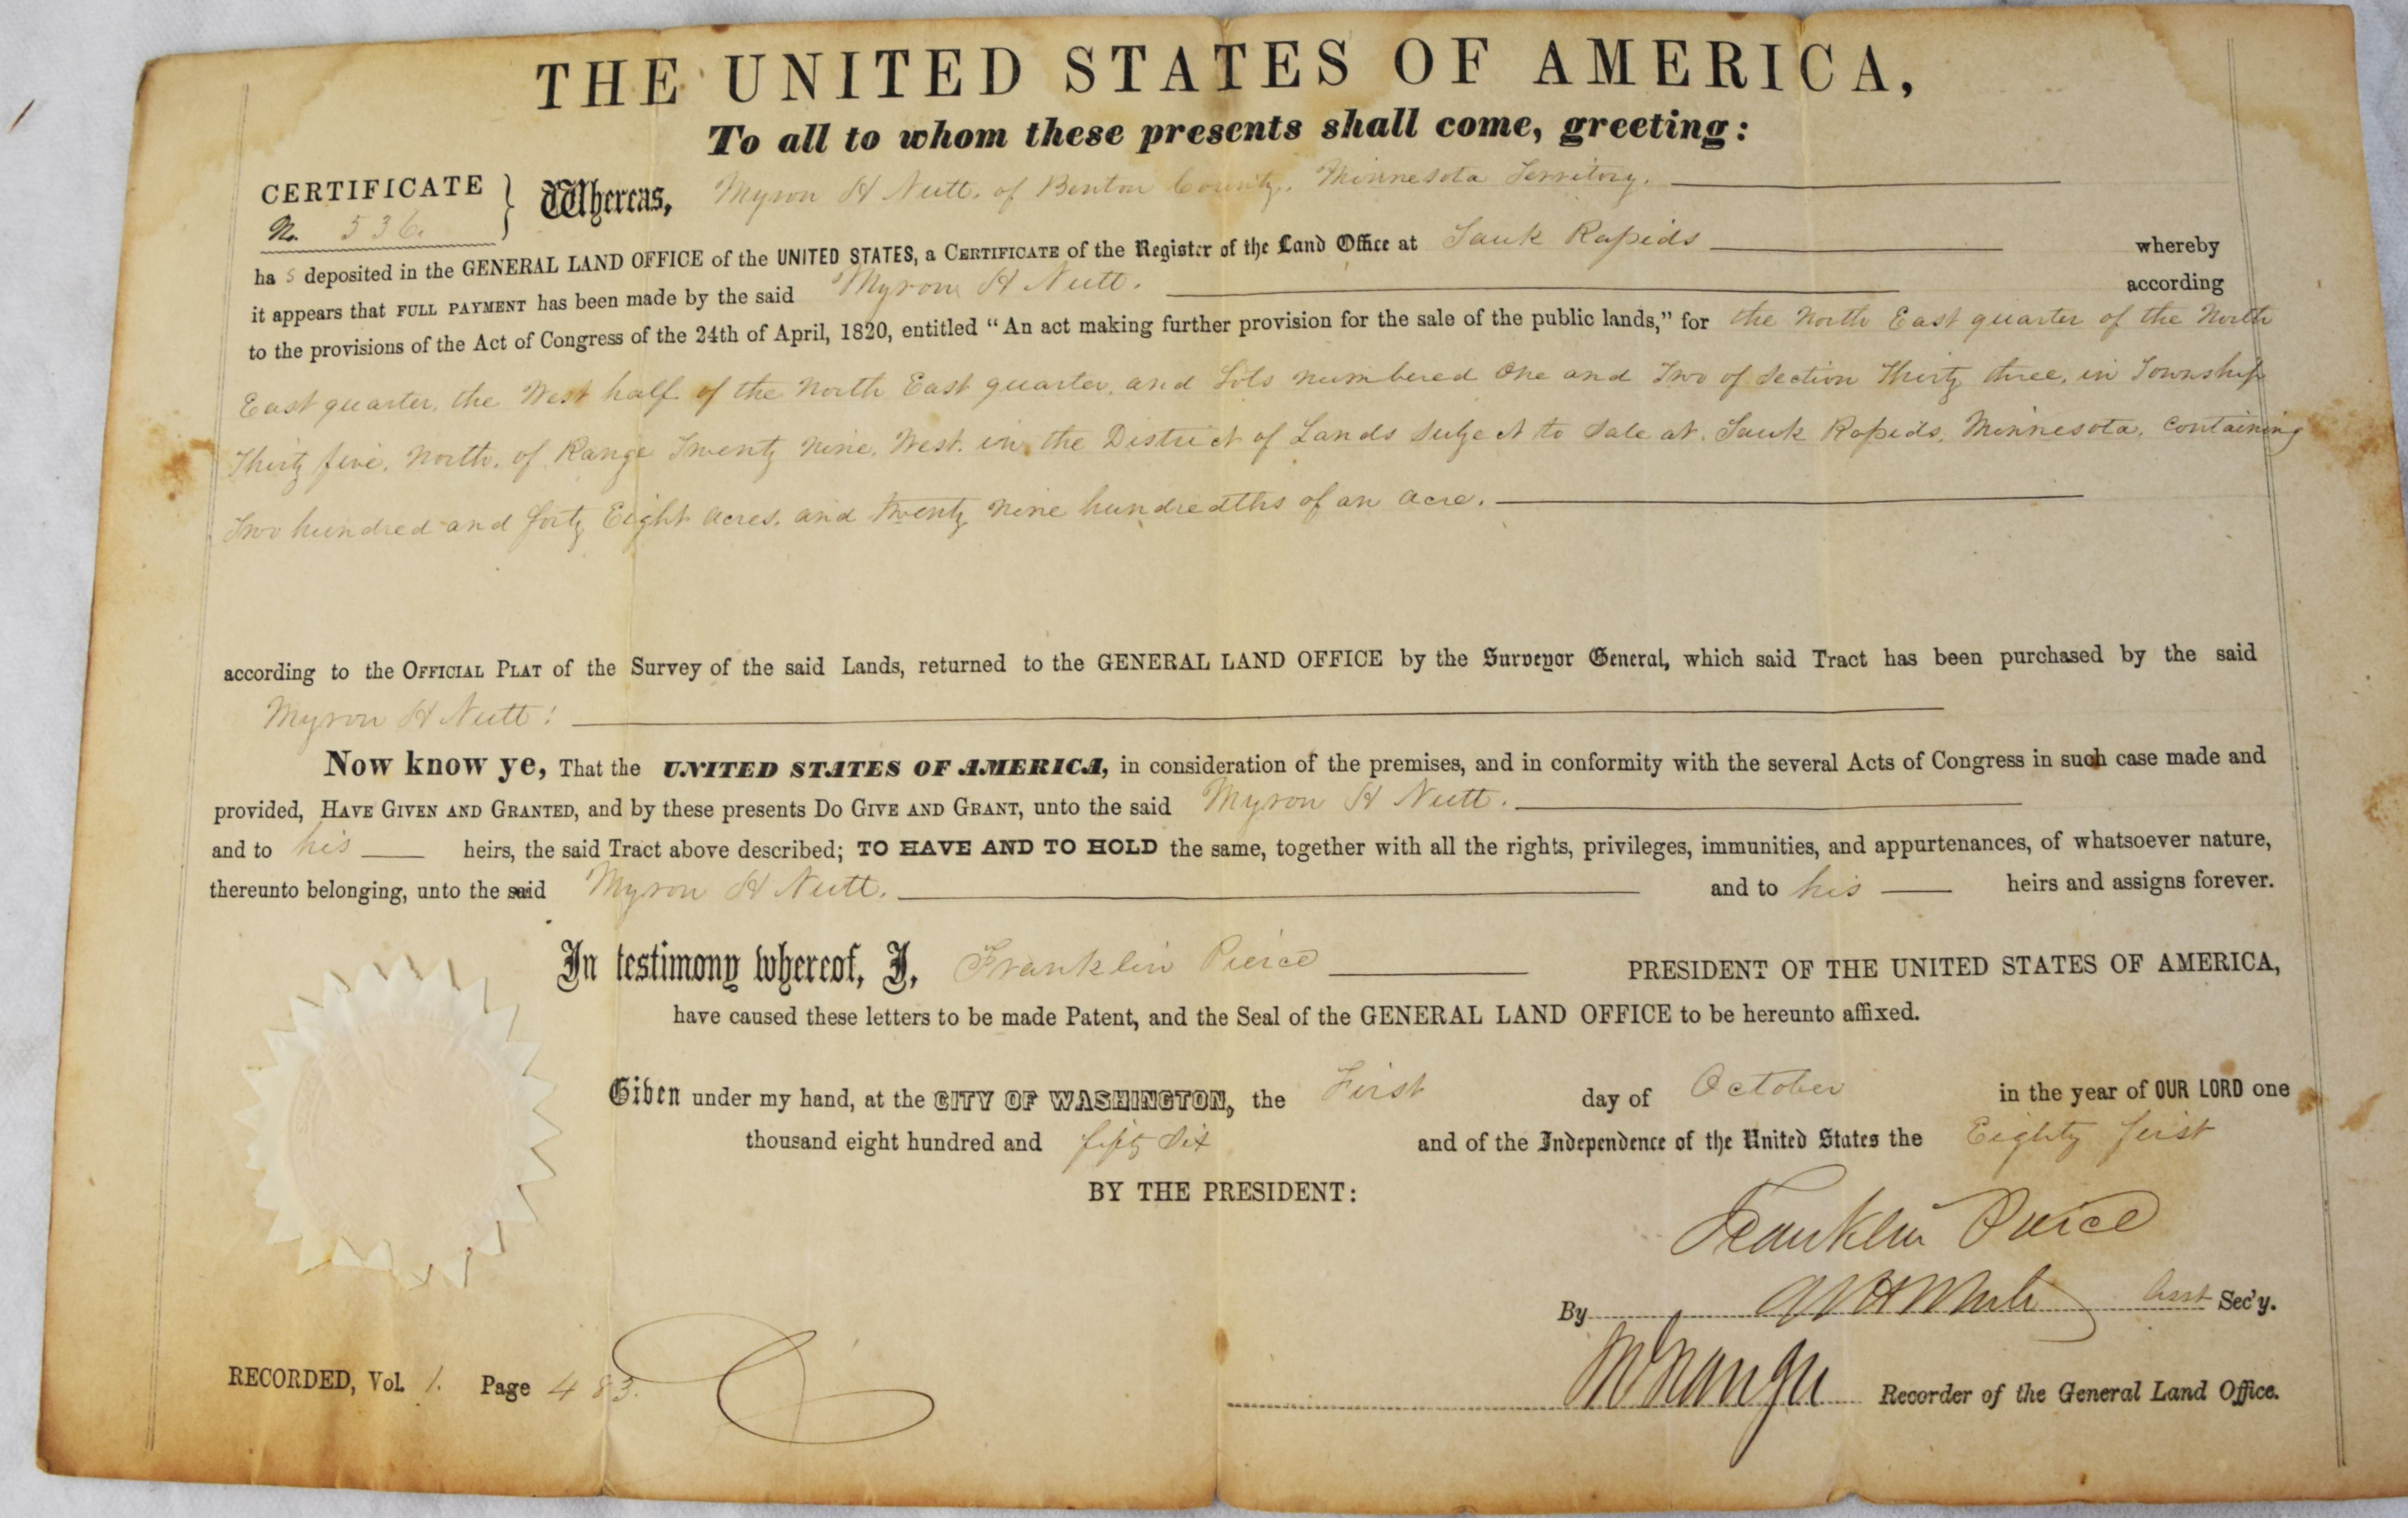 THE UNITED STATES OF AMERICA,
To all to whom these presents shall come, greeting:
CERTIFICATE
No. 536.
Whereas, Myron H Nutt, of Benton County, Minnesota Territory.
ha s deposited in the GENERAL LAND OFFICE of the UNITED STATES, a CERTIFICATE of the Register of the Land Office at Sauk Rapids whereby
it appears that FULL PAYMENT has been made by the said Myron H Nutt. according
to the provisions of the Act of Congress of the 24th of April, 1820, entitled “An act making further provision for the sale of the public lands,” for the North East quarter of the North
East quarter, the West half of the North East quarter, and Lots numbered One and Two of Section Thirty three, in Township
Thirty five, North, of Range Twenty Nine, West, in the District of Lands Subject to Sale at Sauk Rapids, Minnesota, Containing
Two hundred and forty Eight acres, and twenty nine hundredths of an acre.
according to the OFFICIAL PLAT of the Survey of the said Lands, returned to the GENERAL LAND OFFICE by the Surveyor General, which said Tract has been purchased by the said
Myron H Nutt:
Now know ye, That the UNITED STATES OF AMERICA, in consideration of the premises, and in conformity with the several Acts of Congress in such case made and
provided, HAVE GIVEN AND GRANTED, and by these presents DO GIVE AND GRANT, unto the said Myron H Nutt.
and to his heirs, the said Tract above described; TO HAVE AND TO HOLD the same, together with all the rights, privileges, immunities, and appurtenances, of whatsoever nature,
thereunto belonging, unto the said Myron H Nutt. and to his heirs and assigns forever.
In testimony whereof, I, Franklin Pierce PRESIDENT OF THE UNITED STATES OF AMERICA,
have caused these letters to be made Patent, and the Seal of the GENERAL LAND OFFICE to be hereunto affixed.
Given under my hand, at the CITY OF WASHINGTON, the First day of October in the year of OUR LORD one
thousand eight hundred and fifty Six and of the Independence of the United States the Eighty first
BY THE PRESIDENT:
Franklin Pierce
By Asst Sec'y.
RECORDED, Vol. 1. Page 483.
Recorder of the General Land Office.